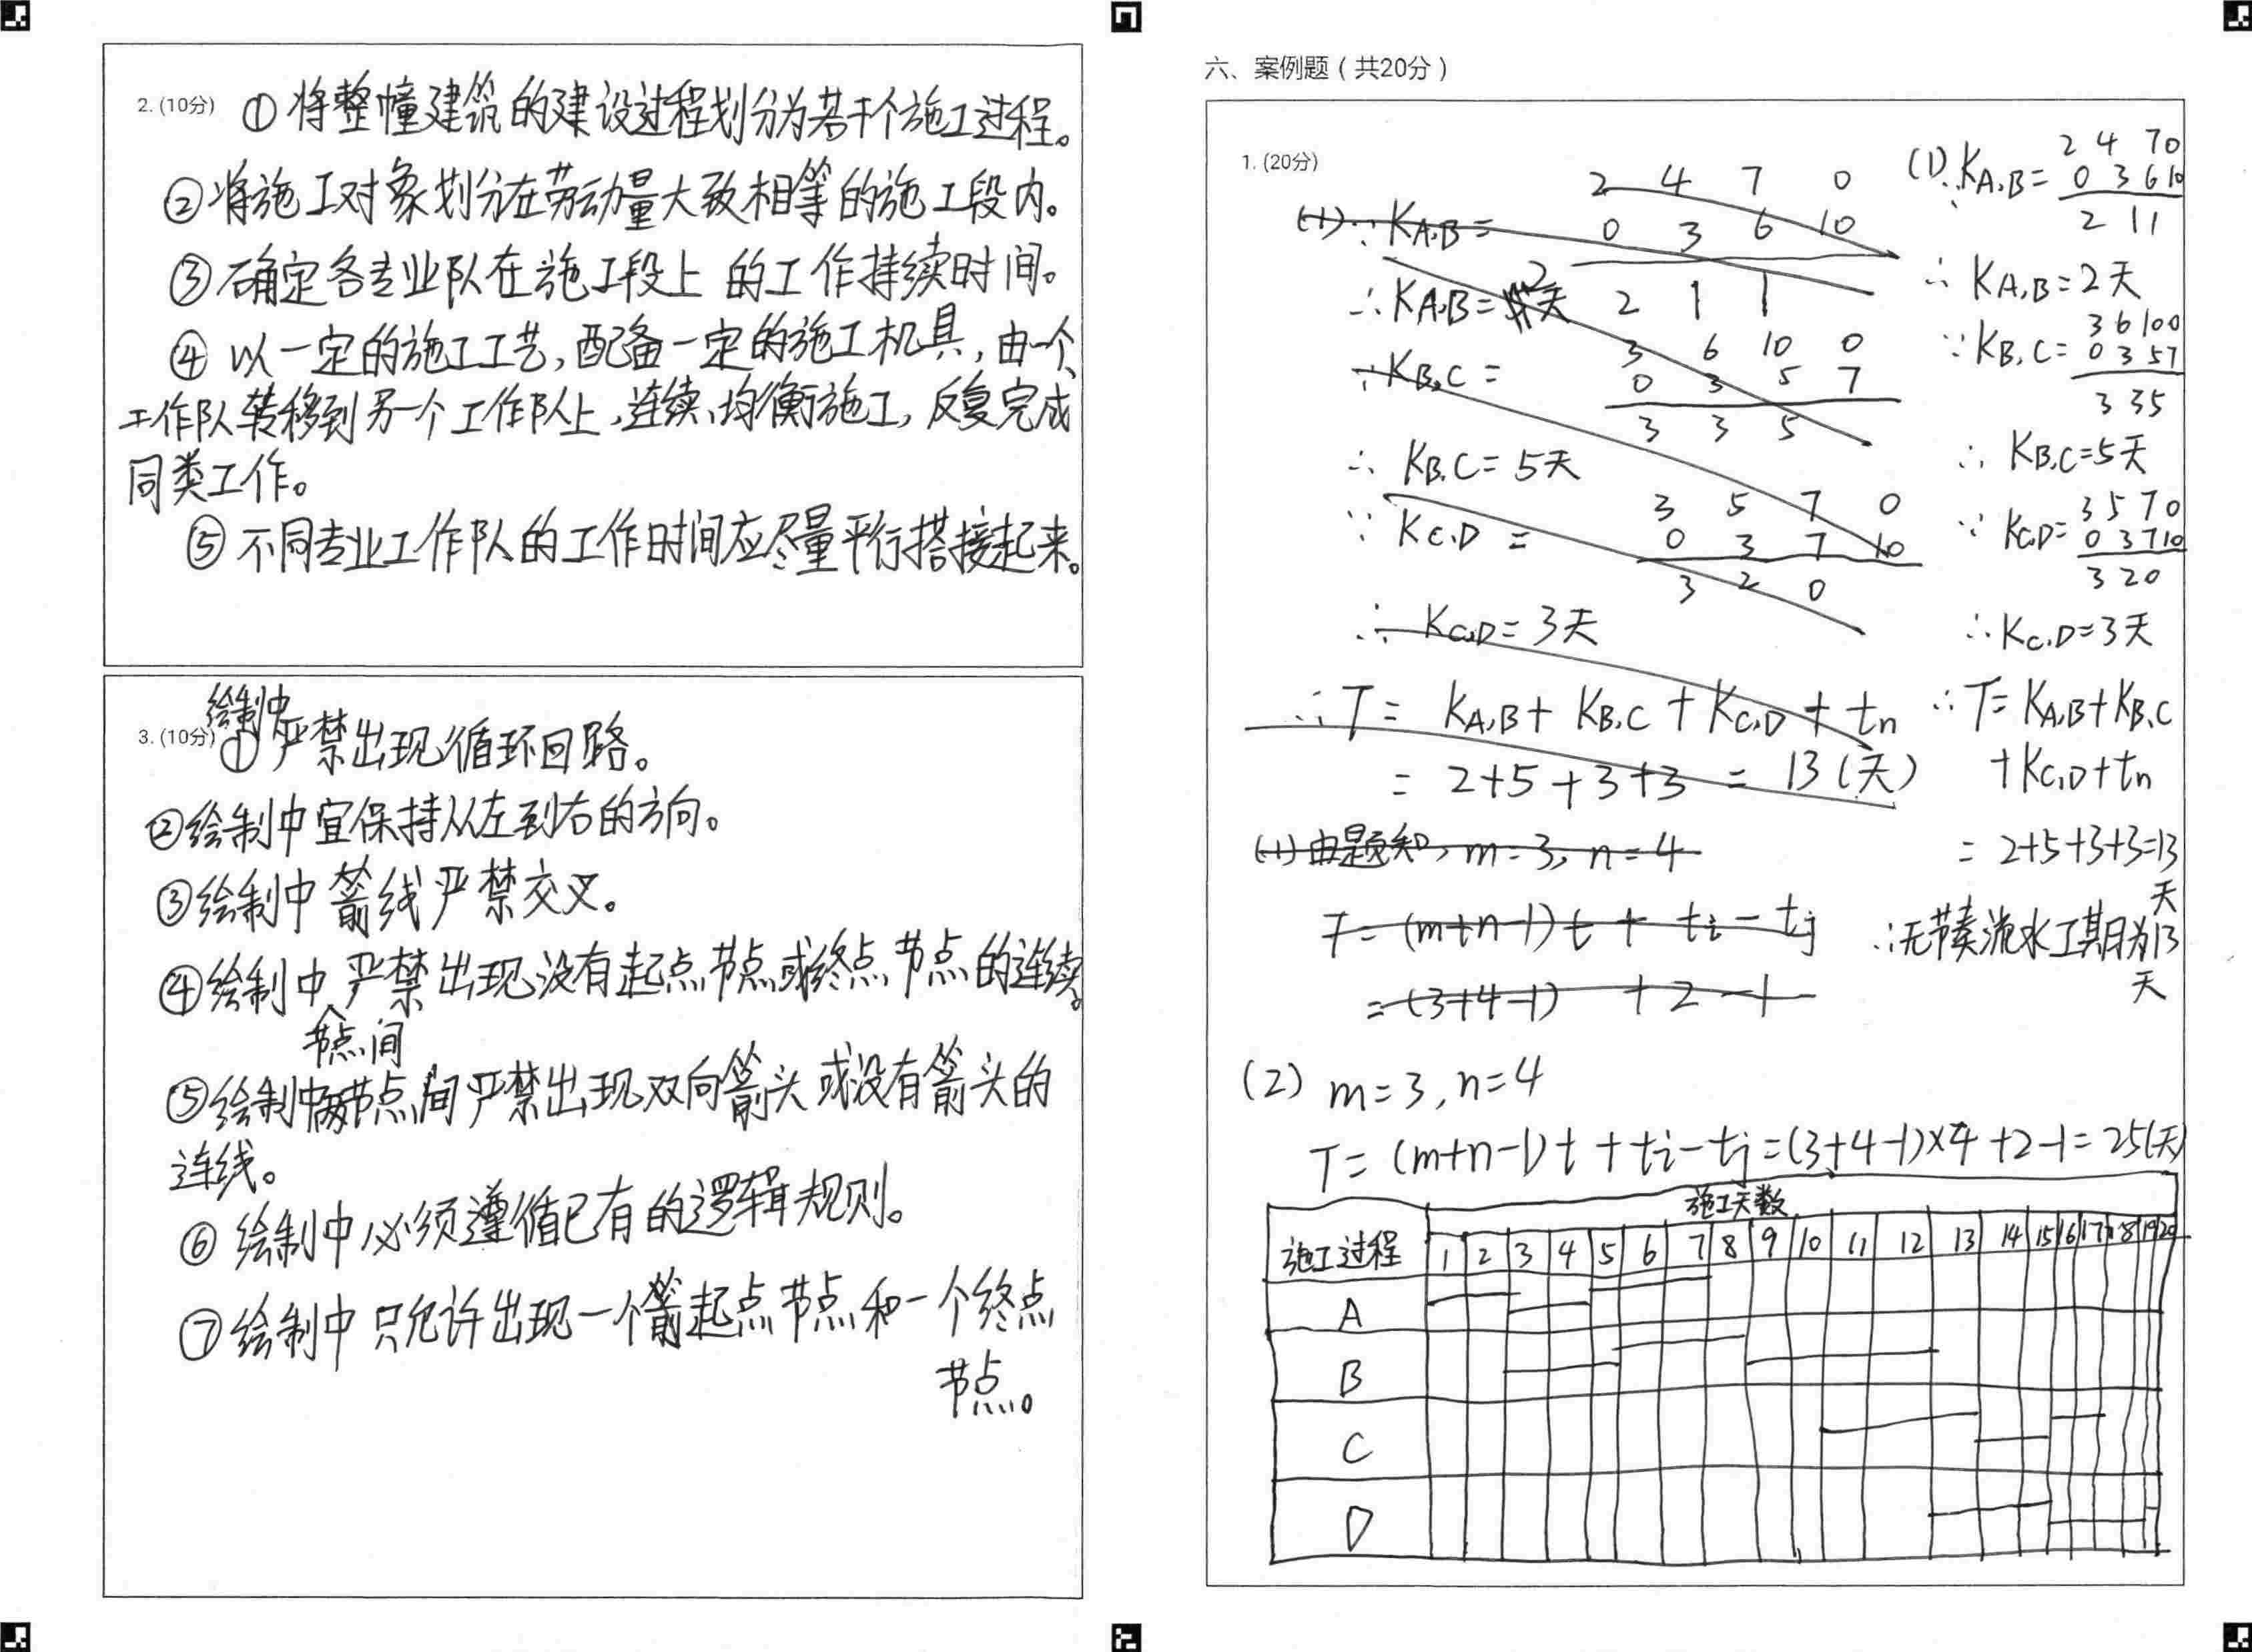 2. (10分) ①将整幢建筑的建设过程划分为若干个施工过程。
②将施工对象划分在劳动量大致相等的施工段内。
③确定各专业队在施工段上的工作持续时间。
④以一定的施工工艺,配备一定的施工机具,由一个
工作队转移到另一个工作队上,连续、均衡施工,反复完成
同类工作。
⑤不同专业工作队的工作时间应尽量平行搭接起来。
绘制中
3. (10分) ①严禁出现循环回路。
②绘制中宜保持从左到右的方向。
③绘制中箭线严禁交叉。
④绘制中严禁出现没有起点节点或终点节点的连续。
节点间
⑤绘制中两节点间严禁出现双向箭头或没有箭头的
连线。
⑥绘制中必须遵循已有的逻辑规则。
⑦绘制中只允许出现一个起点节点和一个终点
节点。
六、案例题(共20分)
1. (20分)
2 4 7 0
(1)∵KA,B= 0 3 6 10
∴KA,B=2天 2 1 1
3 6 10 0
∵KB,C= 0 3 5 7
3 3 5
∴KB,C=5天
3 5 7 0
∵KC,D= 0 3 7 10
3 2 0
∴KC,D=3天
∴T= KA,B+KB,C+KC,D+tn
=2+5+3+3=13(天)
(1)由题知,m=3,n=4
T=(m+n-1)t+ti-tj
=(3+4-1) +2-1
2 4 7 0
(1)∵KA,B= 0 3 6 10
2 1 1
∴KA,B=2天
3 6 10 0
∵KB,C= 0 3 5 7
3 3 5
∴KB,C=5天
3 5 7 0
∵KC,D= 0 3 7 10
3 2 0
∴KC,D=3天
∴T=KA,B+KB,C
+KC,D+tn
=2+5+3+3=13
天
∴无节奏流水工期为13
天
(2) m=3,n=4
T=(m+n-1)t+ti-tj=(3+4-1)×4+2-1=25(天)
施工天数
施工过程 1 2 3 4 5 6 7 8 9 10 11 12 13 14 15 16 17 18 19 20
A
B
C
D